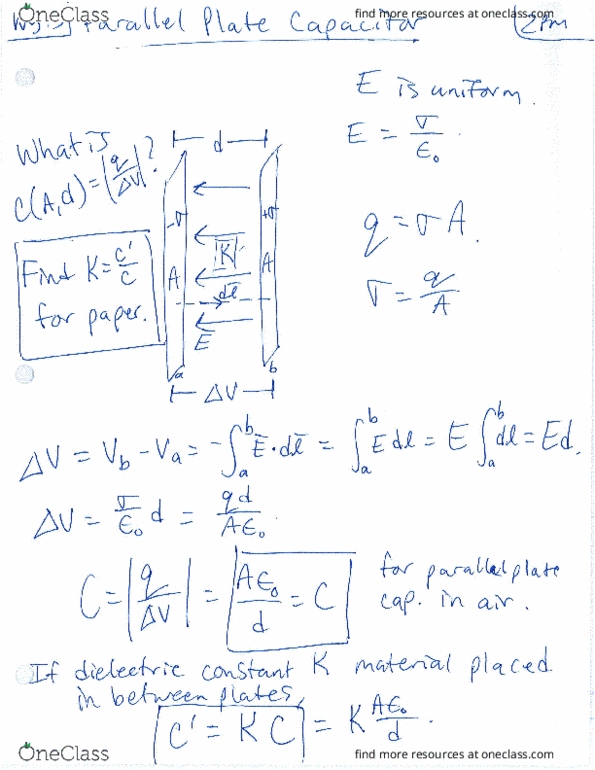 OneClass find more resources at oneclass.com
Parallel Plate Capacitor
E is uniform.
E = σ/ε₀.
What is
C(A,d) = |q/ΔV|?
d
-σ
+σ
q = σA.
K
Find K = C'/C
for paper.
A
A
dl
E
σ = q/A
a
b
ΔV
ΔV = V_b - V_a = -∫_a^b E̅·dl̅ = ∫_a^b E dl = E ∫_a^b dl = Ed.
ΔV = σ/ε₀ d = qd/Aε₀.
C = |q/ΔV| = Aε₀/d = C
for parallel plate
cap. in air.
If dielectric constant K material placed
in between plates,
C' = K C = K Aε₀/d.
OneClass find more resources at oneclass.com